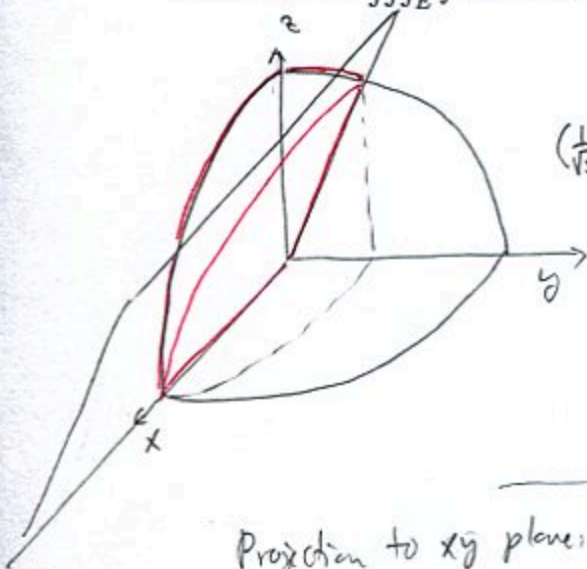 ∭E
z
(1/√
y
x
Projection to xy plane: